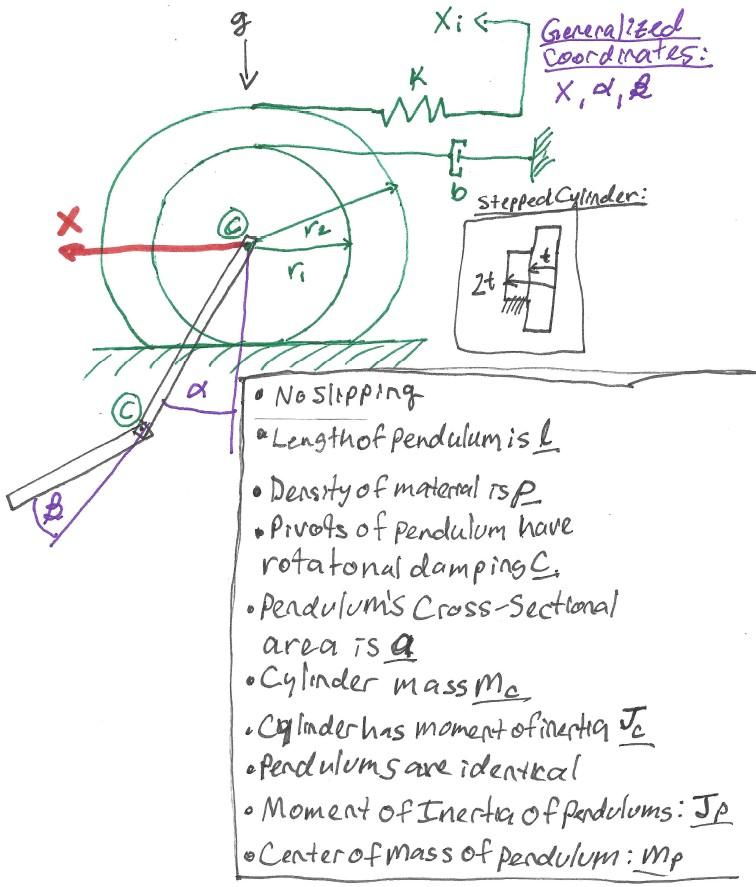 g
Xi
Generalized
Coordinates:
X, α, β
K
b
Stepped Cylinder:
X
C
r2
r1
t
2t
α
C
β
• No slipping
• Length of pendulum is l
• Density of material is ρ
• Pivots of pendulum have
rotatonal damping C.
• Pendulum's Cross-Sectional
area is a
• Cylinder mass Mc
• Cylinder has moment of inertia Jc
• Pendulums are identical
• Moment of Inertia of pendulums: Jp
• Center of Mass of pendulum: mp